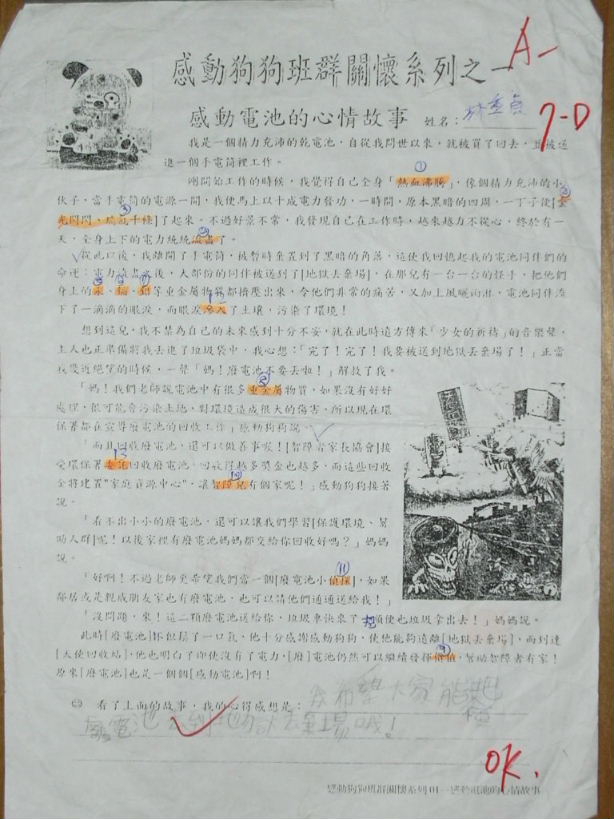 感動狗狗班群關懷系列之一
A-
感動電池的心情故事 姓名：林
7-D
我是一個精力充沛的乾電池，自從我問世以來，就被買了回去，並被送
進一個手電筒裡工作。
①
剛開始工作的時候，我覺得自己全身「熱血沸騰」，像個精力充沛的小
伙子，當手電筒的電源一開，我便馬上以十成電力發功，一時間，原本黑暗的四周，一下子從[金
光閃閃，瑞氣千條]了起來。不過好景不常，我發現自己在工作時，越來越力不從心，終於有一
天，全身上下的電力統統流盡了。
從此以後，我離開了手電筒，被暫時棄置到了黑暗的角落，這使我回憶起我的電池同伴們的
命運：電力流盡之後，大部份的同伴被送到了[地獄丟棄場]，在那兒有一台一台的怪手，把他們
身上的汞、鎘、鉛等重金屬物質都擠壓出來，令他們非常的痛苦，又加上風曬雨淋，電池同伴流
下了一滴滴的眼淚，而眼淚滲入了土壤，污染了環境！
想到這兒，我不禁為自己的未來感到十分不安，就在此時遠方傳來「少女的祈禱」的音樂聲，
主人也正準備將我丟進了垃圾袋中，我心想：「完了！完了！我要被送到地獄丟棄場了！」正當
我幾近絕望的時候，一聲「媽！廢電池不要丟啦！」解救了我。
「媽！我們老師說電池中有很多重金屬物質，如果沒有好好
處理，很可能會污染土地，對環境造成很大的傷害，所以現在環
保署都在宣導廢電池的回收工作」感動狗狗說。
「而且回收廢電池，還可以做善事喔！[智障者家長協會]接
受環保署委託回收廢電池，回收得越多獎金也越多，而這些回收
金將建置"家庭資源中心"，讓智障兒有個家呢！」感動狗狗接著
說。
「看不出小小的廢電池，還可以讓我們學習[保護環境、幫
助人群]呢！以後家裡有廢電池媽媽都交給你回收好嗎？」媽媽
說。
⑪
「好啊！不過老師更希望我們當一個[廢電池小偵探]，如果
鄰居或是親戚朋友家也有廢電池，也可以請他們通通送給我！」
「沒問題，來！這二顆廢電池送給你，垃圾車快來了，順便也垃圾拿出去！」媽媽說。
把
此時[廢電池]鬆似鬆了一口氣，他十分感謝感動狗狗，使他能夠遠離[地獄丟棄場]，而到達
[天使回收站]，他也明白了即使沒有了電力，[廢]電池仍然可以繼續發揮價值，幫助智障者有家！
原來[廢電池]也是一個個[感動電池]啊！
看了上面的故事，我的心得感想是：我希望大家能把
廢電池 到地獄丟棄場哦！
OK.
感動狗狗班群關懷系列01—感動電池的心情故事